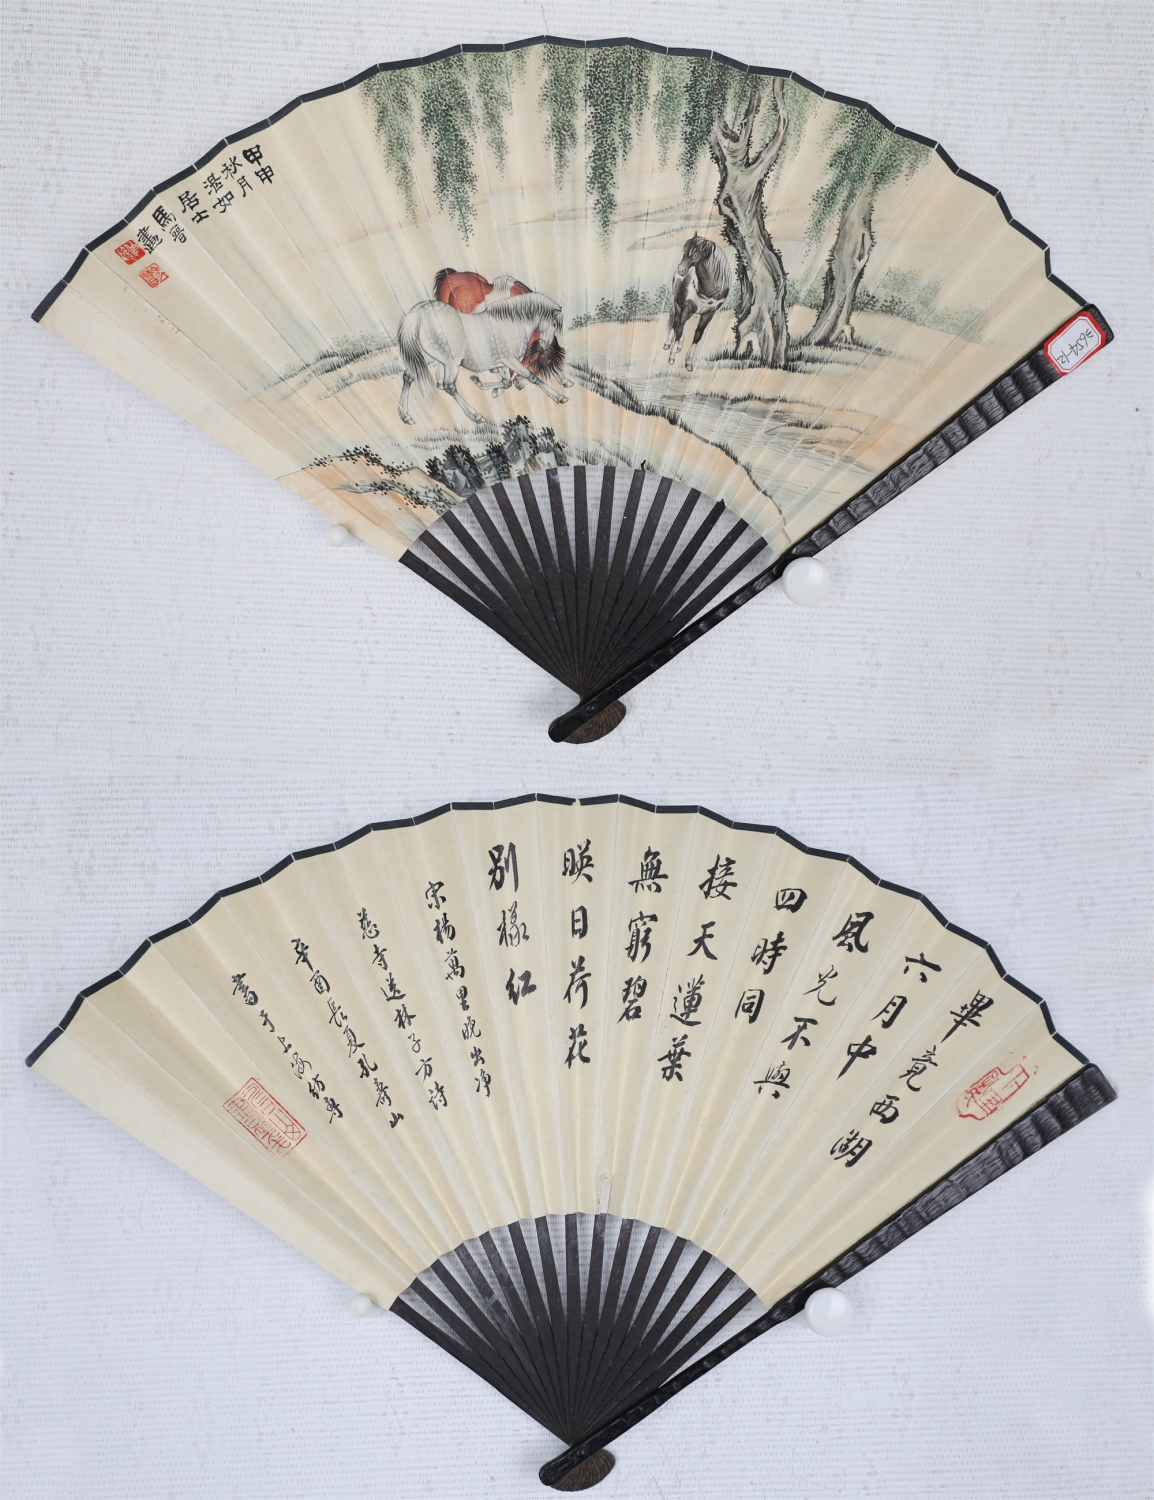 甲申
秋月
湛如
居士
馬晉
畫
畢竟西湖
六月中
風光不與
四時同
接天蓮葉
無窮碧
暎日荷花
別樣紅
宋楊萬里晚出净
慈寺送林子方詩
辛酉長夏孔壽山
書于上海